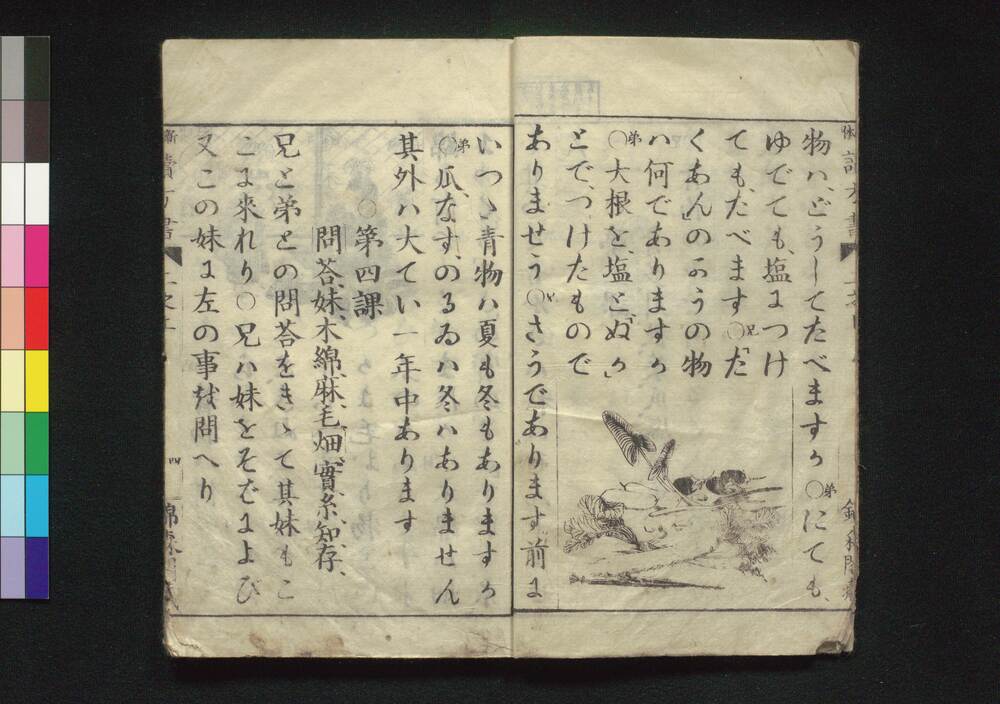 物ハ、どうしてたべますか ○弟にても、
ゆでても、塩につけ
ても、たべます ○兄「た
くあん」のかうの物
ハ何でありますか
○弟大根を、塩と「ぬか」
とで、つけたもので
ありませう ○兄さうであります 前に
いつゝ青物ハ夏も冬もありますか
○弟瓜、なす、のるゐハ冬ハありません
其外ハ大てい一年中あります
○第四課
問、答、妹、木綿、麻、毛、畑、實、糸、知、存、
兄と弟との問答をきゝて其妹もこ
こに來れり ○兄ハ妹をそばによび
又この妹に左の事を問へり
四